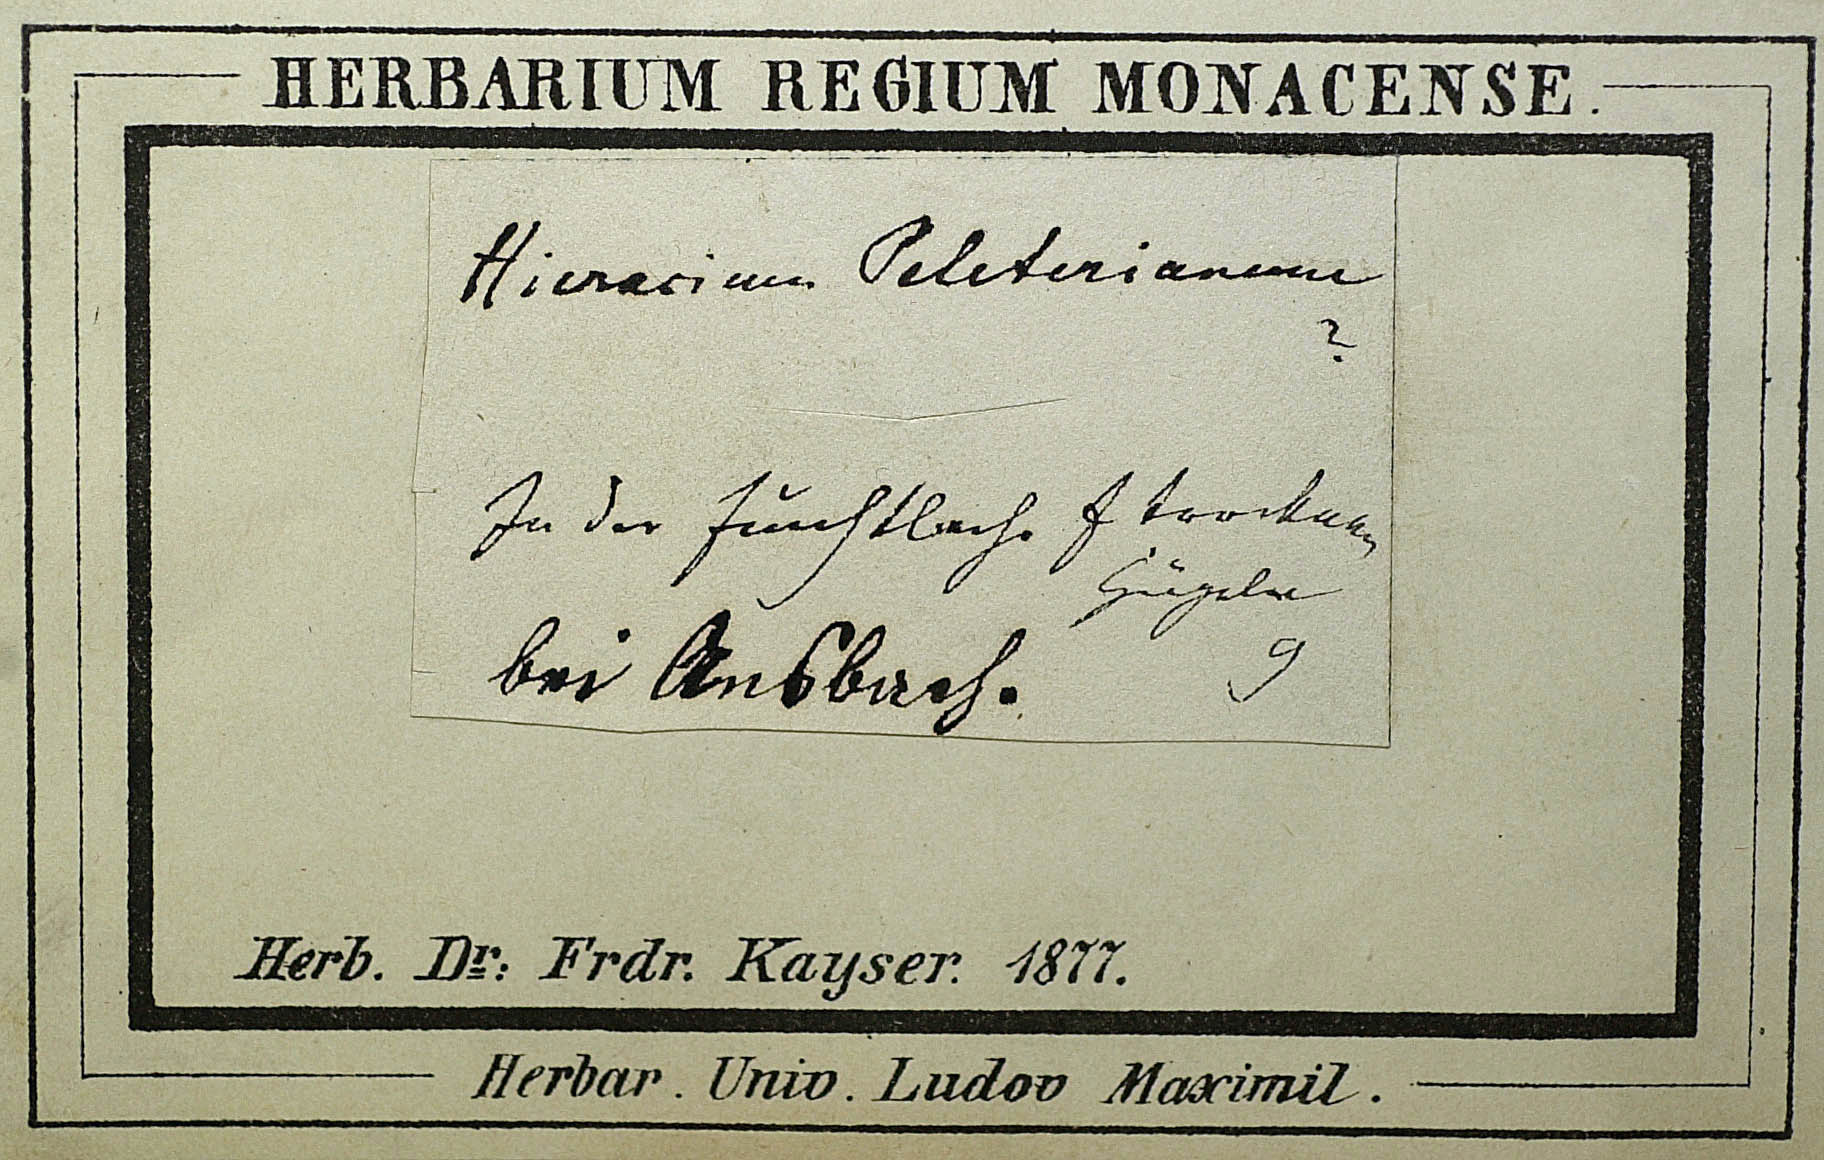 HERBARIUM REGIUM MONACENSE.
Hieracium Peleterianum
?
In der trocknen
Hügeln
bei Ansbach.
9
Herb. Dr: Frdr. Kayser. 1877.
Herbar. Univ. Ludov Maximil.